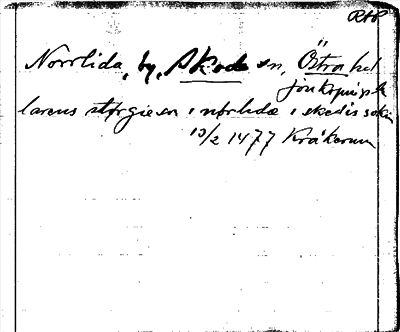 RAP
Norrlida, by, Skede sn, Östra hd
Jönköpings l
larens størgiesson i nørlidæ i skedis sokn
10/2 1477 Kråkerum